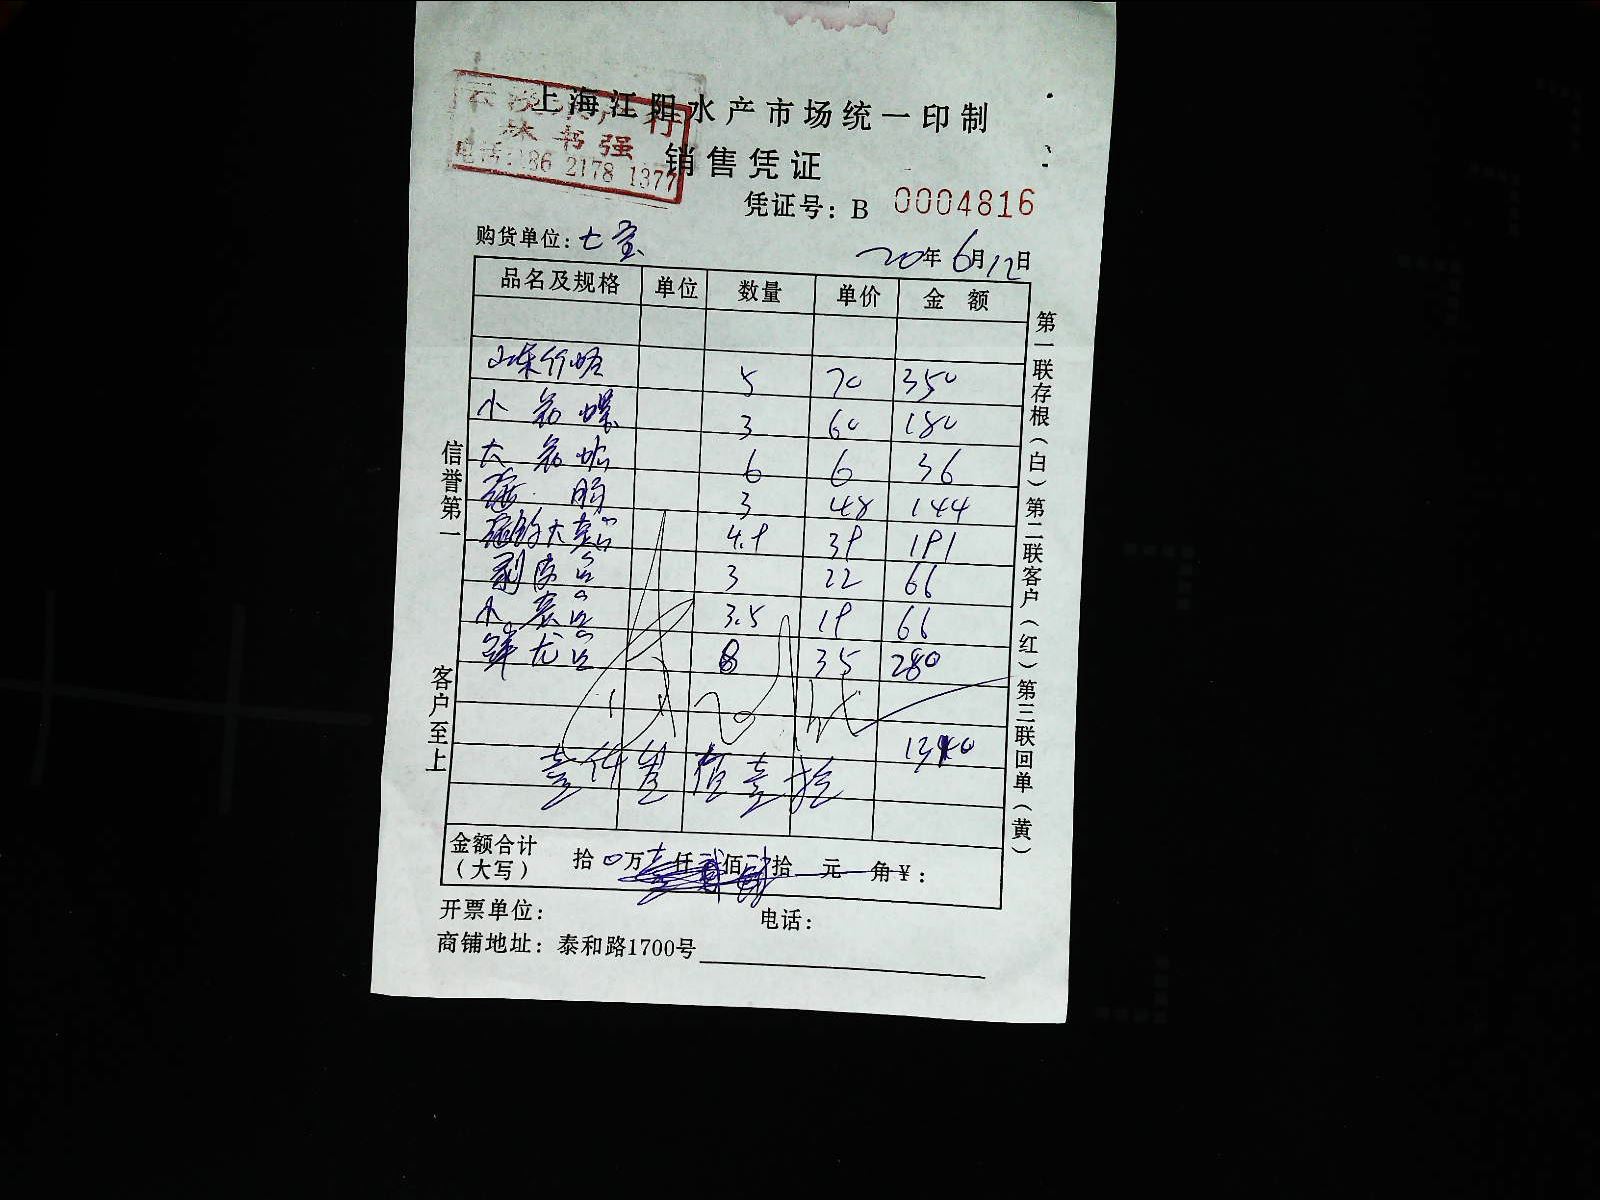 上海江阳水产市场统一印制
行
书强
电话:186 2178 1377
销售凭证
凭证号：B 0004816
购货单位：七宝 20年6月12日
品名及规格 单位 数量 单价 金 额
山东竹蛏 5 70 350
小 3 60 180
大 6 6 36
3 48 144
大 4.9 39 191
剥皮鱼 3 22 66
小 鱼 3.5 19 66
鲜尤鱼 8 35 280
壹仟 佰壹拾
金额合计
（大写） 拾0万 仟 佰 拾 元 角¥：
开票单位： 电话：
商铺地址：泰和路1700号
信誉第一 客户至上
第一联存根（白）第二联客户（红）第三联回单（黄）